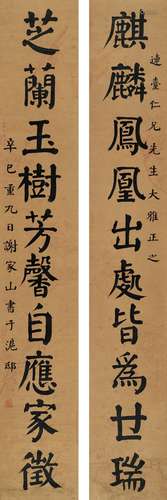 麒麟鳳凰出處皆為廿瑞
達臺仁兄先生大雅正之
芝蘭玉樹芳馨自應家徵
辛巳重九日謝家山書于滬邸